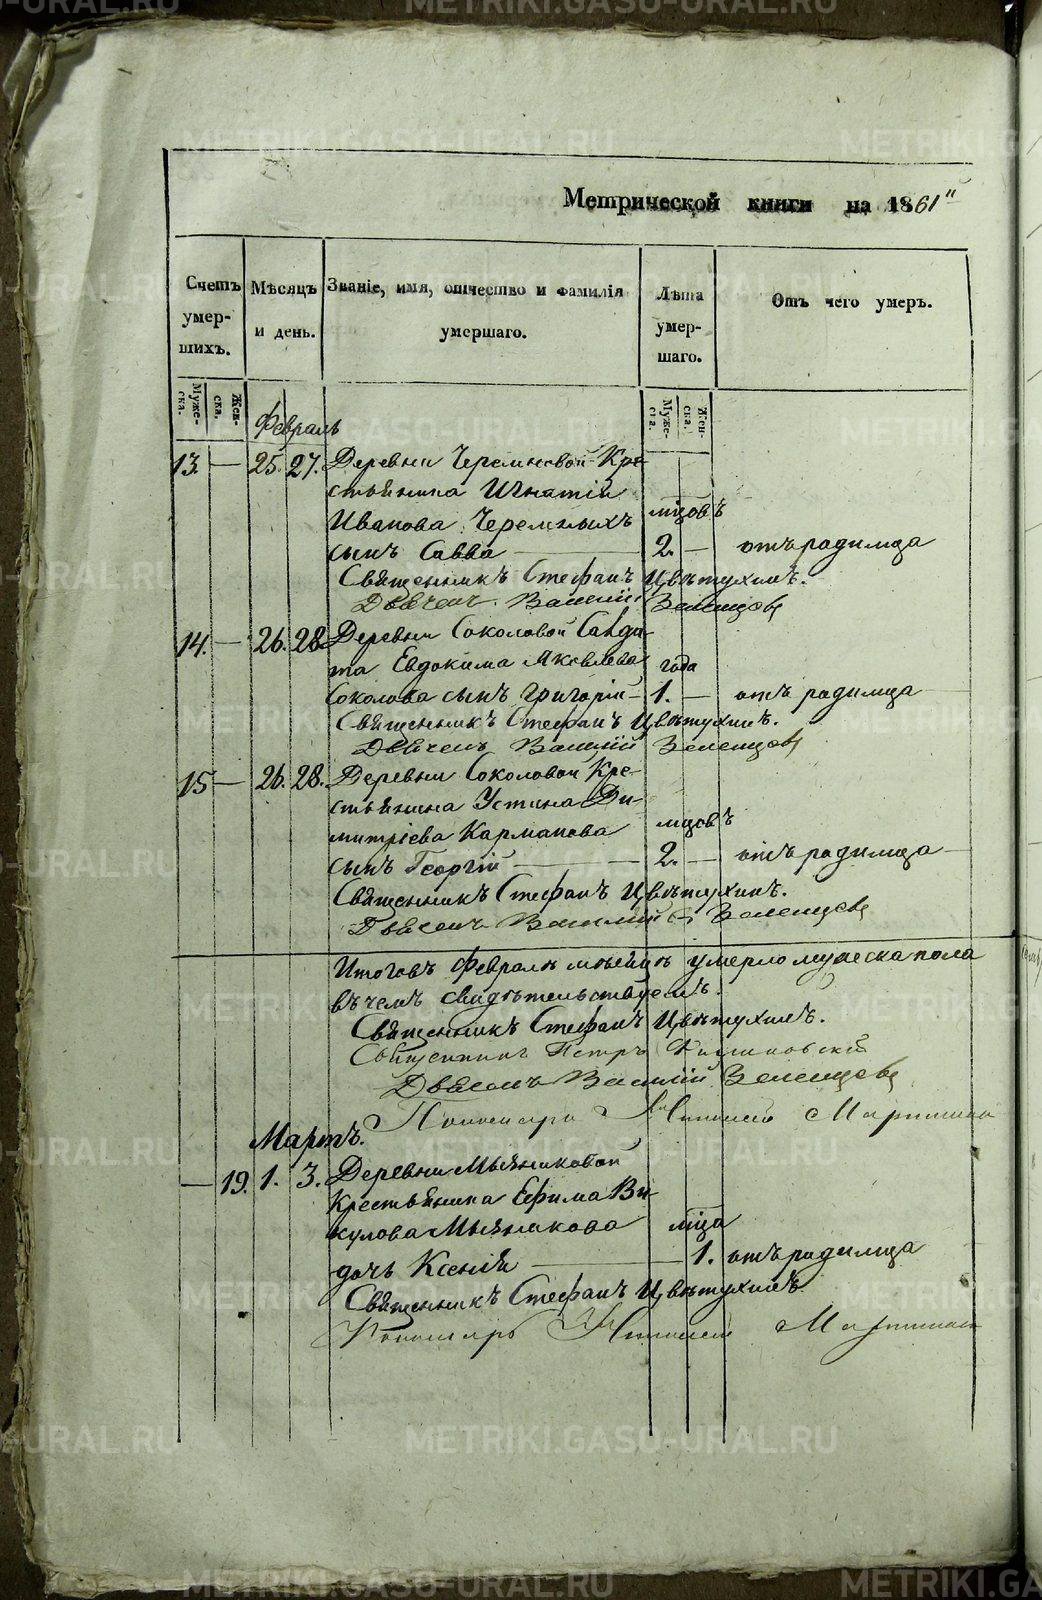 Метрической книги на 1861"
Счетъ умер-шихъ.
Мѣсяцъ и день.
Званіе, имя, отчество и фамилія умершаго.
Лѣта умер-шаго.
Отъ чего умеръ.
Муже-ска.
Жен-ска.
Муже-ска.
Жен-ска.
Февраль
13. — 25. 27. Деревни Черемновой Кре-
стьянина Игнатія
Иванова Черемныхъ мѣцовъ
сынъ Савва — 2. — отъ родимца
Священникъ Стефанъ Цвѣтухинъ.
Дьячекъ Василій Зеленцовъ
14. — 26. 28. Деревни Соколовой Солда-
та Евдокима Яковлева года
Соколова сынъ Григорій — 1. — отъ родимца
Священникъ Стефанъ Цвѣтухинъ.
Дьячекъ Василій Зеленцовъ
15 — 26. 28. Деревни Соколовой Кре-
стьянина Устина Ди-
митріева Карманова мцовъ
сынъ Георгій — 2. — отъ родимца
Священникъ Стефанъ Цвѣтухинъ.
Дьячекъ Василій Зеленцовъ
Итого въ Февралѣ умерло мужеска пола
въ чемъ свидѣтельствуемъ.
Священникъ Стефанъ Цвѣтухинъ.
Священникъ Петръ
Дьячекъ Василій Зеленцовъ
Пономарь
Мартъ.
— 19. 1. 3. Деревни Мьяниковой
Крестьянина Ефима Ви-
кулова Мьяникова мѣца
дочь Ксенія — 1. отъ родимца
Священникъ Стефанъ Цвѣтухинъ
Пономарь
METRIKI.GASO-URAL.RU